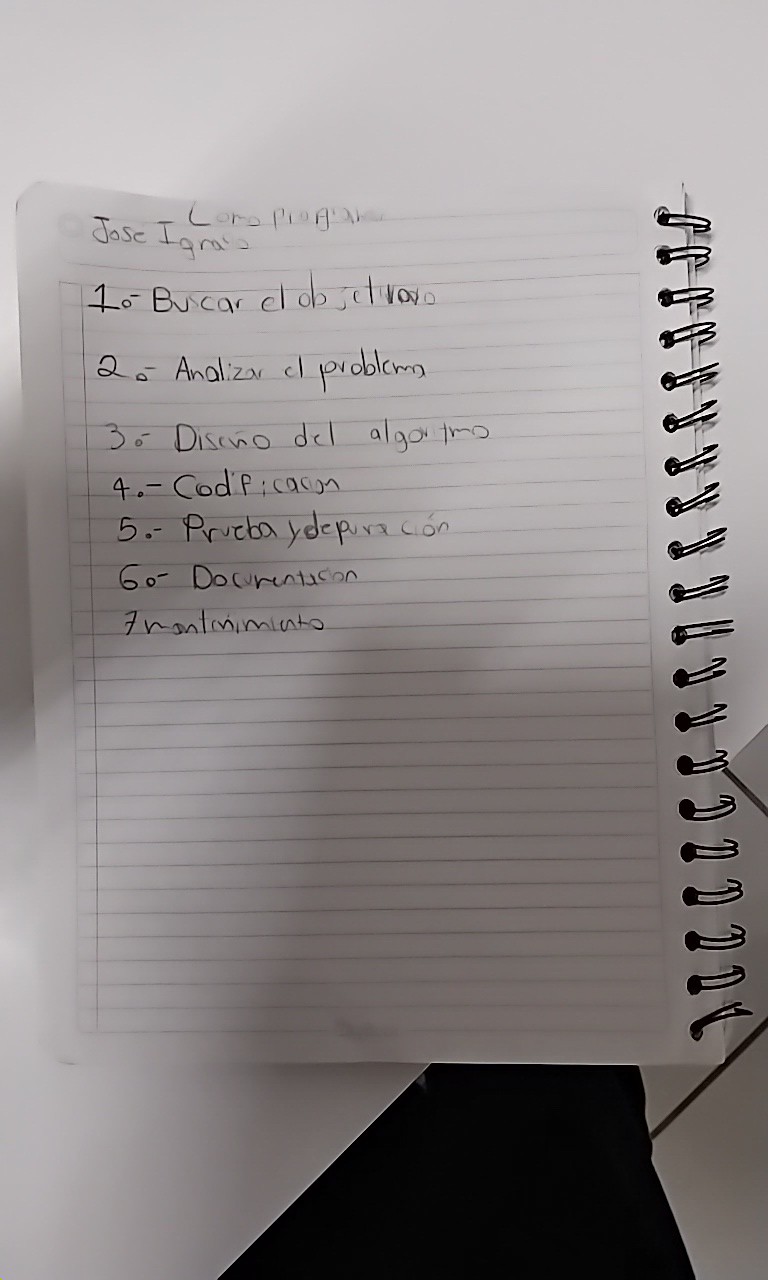 Como Programar
Jose Igna
1.- Buscar el objetivo
2.- Analizar el problema
3.- Diseño del algoritmo
4.- Codificacion
5.- Prueba y depuración
6.- Documentacion
7 mantenimiento